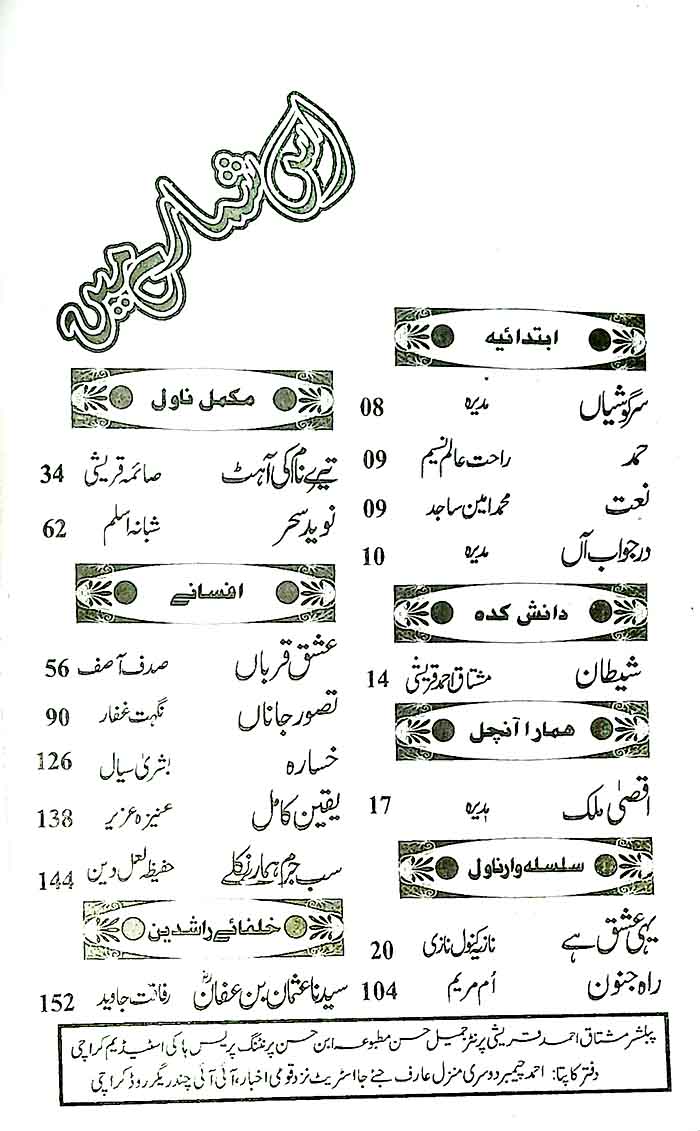 اس شمارے میں
ابتدائیہ
سرگوشیاں مدیرہ 08
حمد راحت عالم نسیم 09
نعت محمد امین ساجد 09
درجواب آں مدیرہ 10
دانش کدہ
شیطان مشتاق احمد قریشی 14
ھمارا آنچل
اقصیٰ ملک مدیرہ 17
سلسلہ وار ناول
یہی عشق ہے نازیہ کنول نازی 20
راہ جنون اُم مریم 104
مکمل ناول
تیرے نام کی آہٹ صائمہ قریشی 34
نوید سحر شبانہ اسلم 62
افسانے
عشق قرباں صدف آصف 56
تصور جاناں نگہت غفار 90
خسارہ بشریٰ سیال 126
یقین کامل عنیزہ عزیر 138
سب جرم ہمارے نکلے حفیظ لعل دین 144
خلفائے راشدین
سیدنا عثمان بن عفانؓ رفاقت جاوید 152
پبلشر مشتاق احمد قریشی پرنٹر جمیل حسن مطبوعہ ابن حسن پرنٹنگ پریس ہاکی اسٹیڈیم کراچی
دفتر کا پتا: احمد چیمبر دوسری منزل عارف جئے جا اسٹریٹ نزد قومی اخبار، آئی آئی چندریگر روڈ کراچی